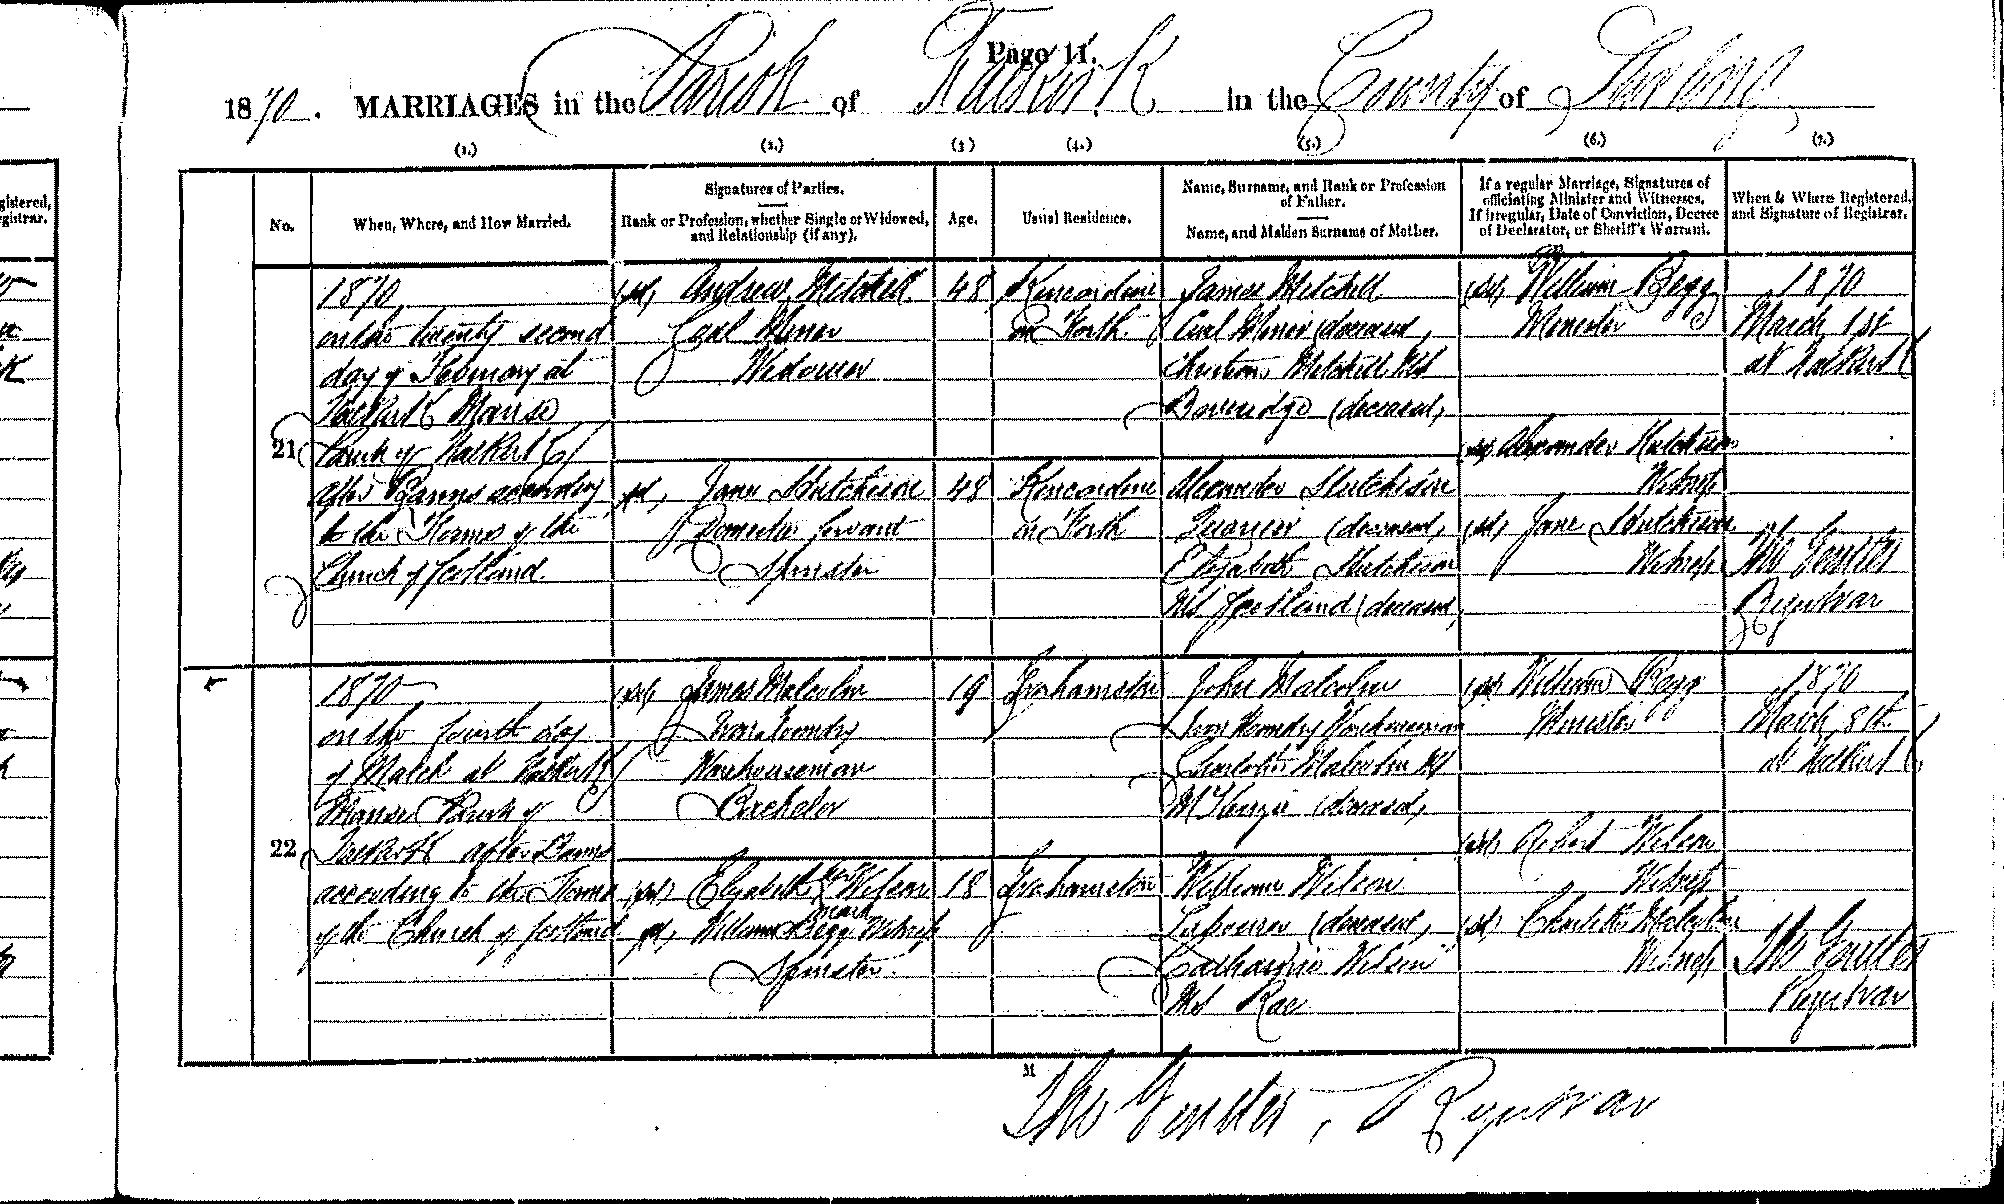 Page 11.
1870. MARRIAGES in the Parish of Falkirk in the County of Stirling
(1.) (2.) (3) (4.) (5.) (6.) (7.)
No.
When, Where, and How Married.
Signatures of Parties.
Rank or Profession, whether Single or Widowed,
and Relationship (if any).
Age.
Usual Residence.
Name, Surname, and Rank or Profession
of Father.
Name, and Maiden Surname of Mother.
If a regular Marriage, Signatures of
officiating Minister and Witnesses.
If irregular, Date of Conviction, Decree
of Declarator, or Sheriff's Warrant.
When & Where Registered,
and Signature of Registrar.
gistered,
gistrar.
21
1870
on the twenty second
day of February at
Falkirk Manse
Parish of Falkirk
after Banns according
to the Forms of the
Church of Scotland.
(sd) Andrew Mitchell
Coal Miner
Widower
48
Kincardine
on Forth
James Mitchell
Coal Miner (deceased)
Christian Mitchell MS
Beveridge (deceased)
(sd) William Begg
Minister
(sd) Alexander Hutchison
Witness
(sd) Jane Hutchison
Witness
1870
March 1st
at Falkirk
(sd) Jane Hutchison
Domestic Servant
Spinster
48
Kincardine
on Forth
Alexander Hutchison
Quarrier (deceased)
Elizabeth Hutchison
MS Scotland (deceased)
Registrar
22
1870
on the fourth day
of March at Falkirk
Manse Parish of
Falkirk after Banns
according to the Forms
of the Church of Scotland
(sd) James Malcolm
Iron Foundry
Warehouseman
Bachelor
19
Grahamston
John Malcolm
Iron Foundry Warehouseman
Charlotte Malcolm MS
McKenzie (deceased)
(sd) William Begg
Minister
(sd) Robert Wilson
Witness
(sd) Charlotte Malcolm
Witness
1870
March 8th
at Falkirk
(sd) Elizabeth her Wilson
mark
(sd) William Begg Witness
Spinster
18
Grahamston
William Wilson
Labourer (deceased)
Catharine Wilson
MS Rae
Registrar
M
Registrar